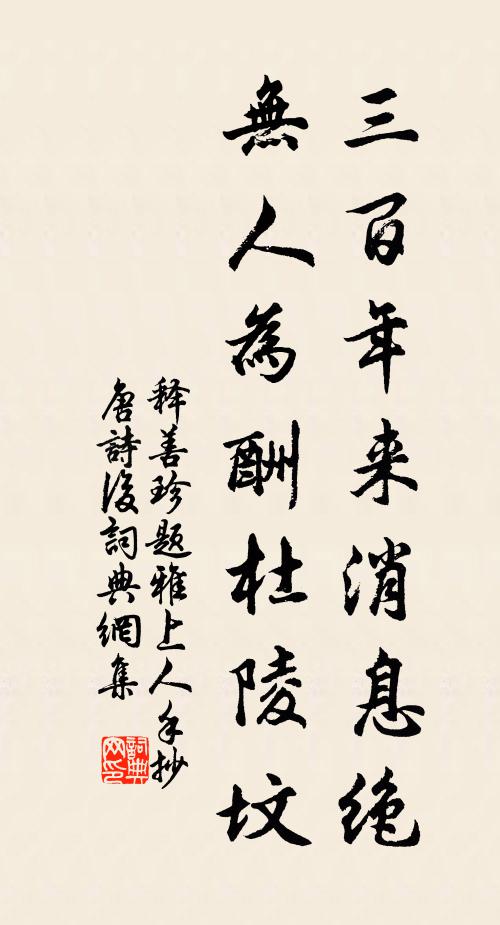 三百年来消息绝
無人為酬杜陵坟
释善珍题雅上人手抄
唐詩後詞典網集
詞典网印